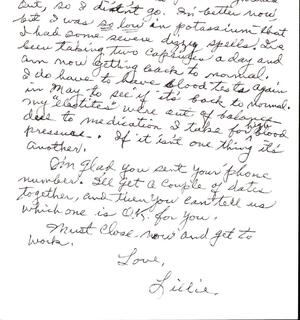 but, so I didn't go. I'm better now
but I was so low in potassium that
I had some severe dizzy spells. I've
been taking two capsules a day and
am now getting back to normal.
I do have to have blood tests again
in May to see if it's back to normal.
my "elastites" were out of balance
due to medication I take for high blood
pressure. If it isn't one thing it's
another.
I'm glad you sent your phone
number. I'll get a couple of dates
together, and then you can tell us
which one is O.K. for you.
Must close now and get to
work.
Love,
Lillie